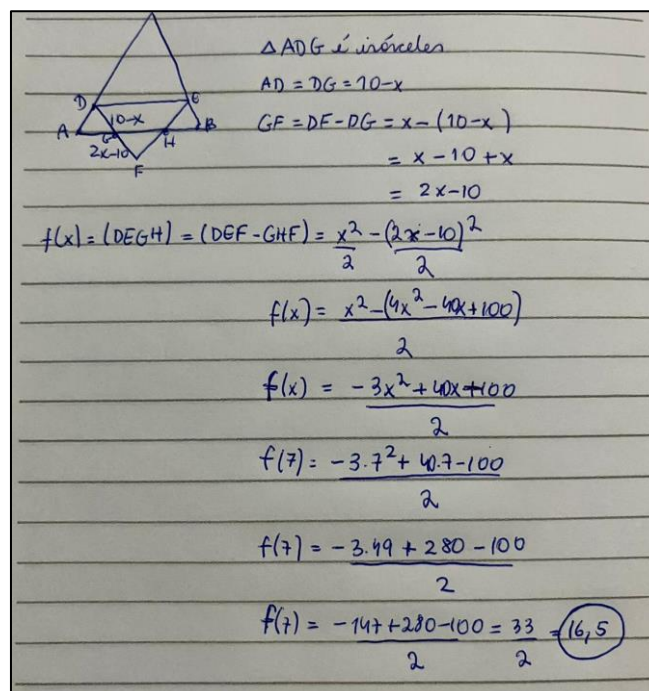 Δ ADG é isósceles
AD = DG = 10-x
D
E
10-x
A
B
G
H
2x-10
F
GF = DF - DG = x - (10-x)
= x - 10 + x
= 2x - 10
f(x) = (DEGH) = (DEF - GHF) = x²/2 - (2x - 10)²/2
f(x) = x² - (4x² - 40x + 100)/2
f(x) = -3x² + 40x - 100/2
f(7) = -3.7² + 40.7 - 100/2
f(7) = -3.49 + 280 - 100/2
f(7) = -147 + 280 - 100/2 = 33/2 = 16,5